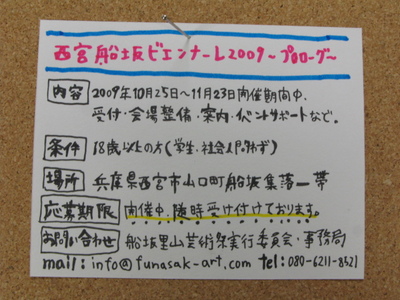 西宮船坂ビエンナーレ2009～プロローグ～
内容 2009年10月25日～11月23日開催期間中、
受付・会場整備・案内・イベントサポートなど。
条件 18歳以上の方(学生、社会人問わず)
場所 兵庫県西宮市山口町船坂集落一帯
応募期限 開催中、随時受け付けております。
お問い合わせ 船坂里山芸術祭実行委員会・事務局
mail: info@funasak-art.com tel: 080-6211-8521